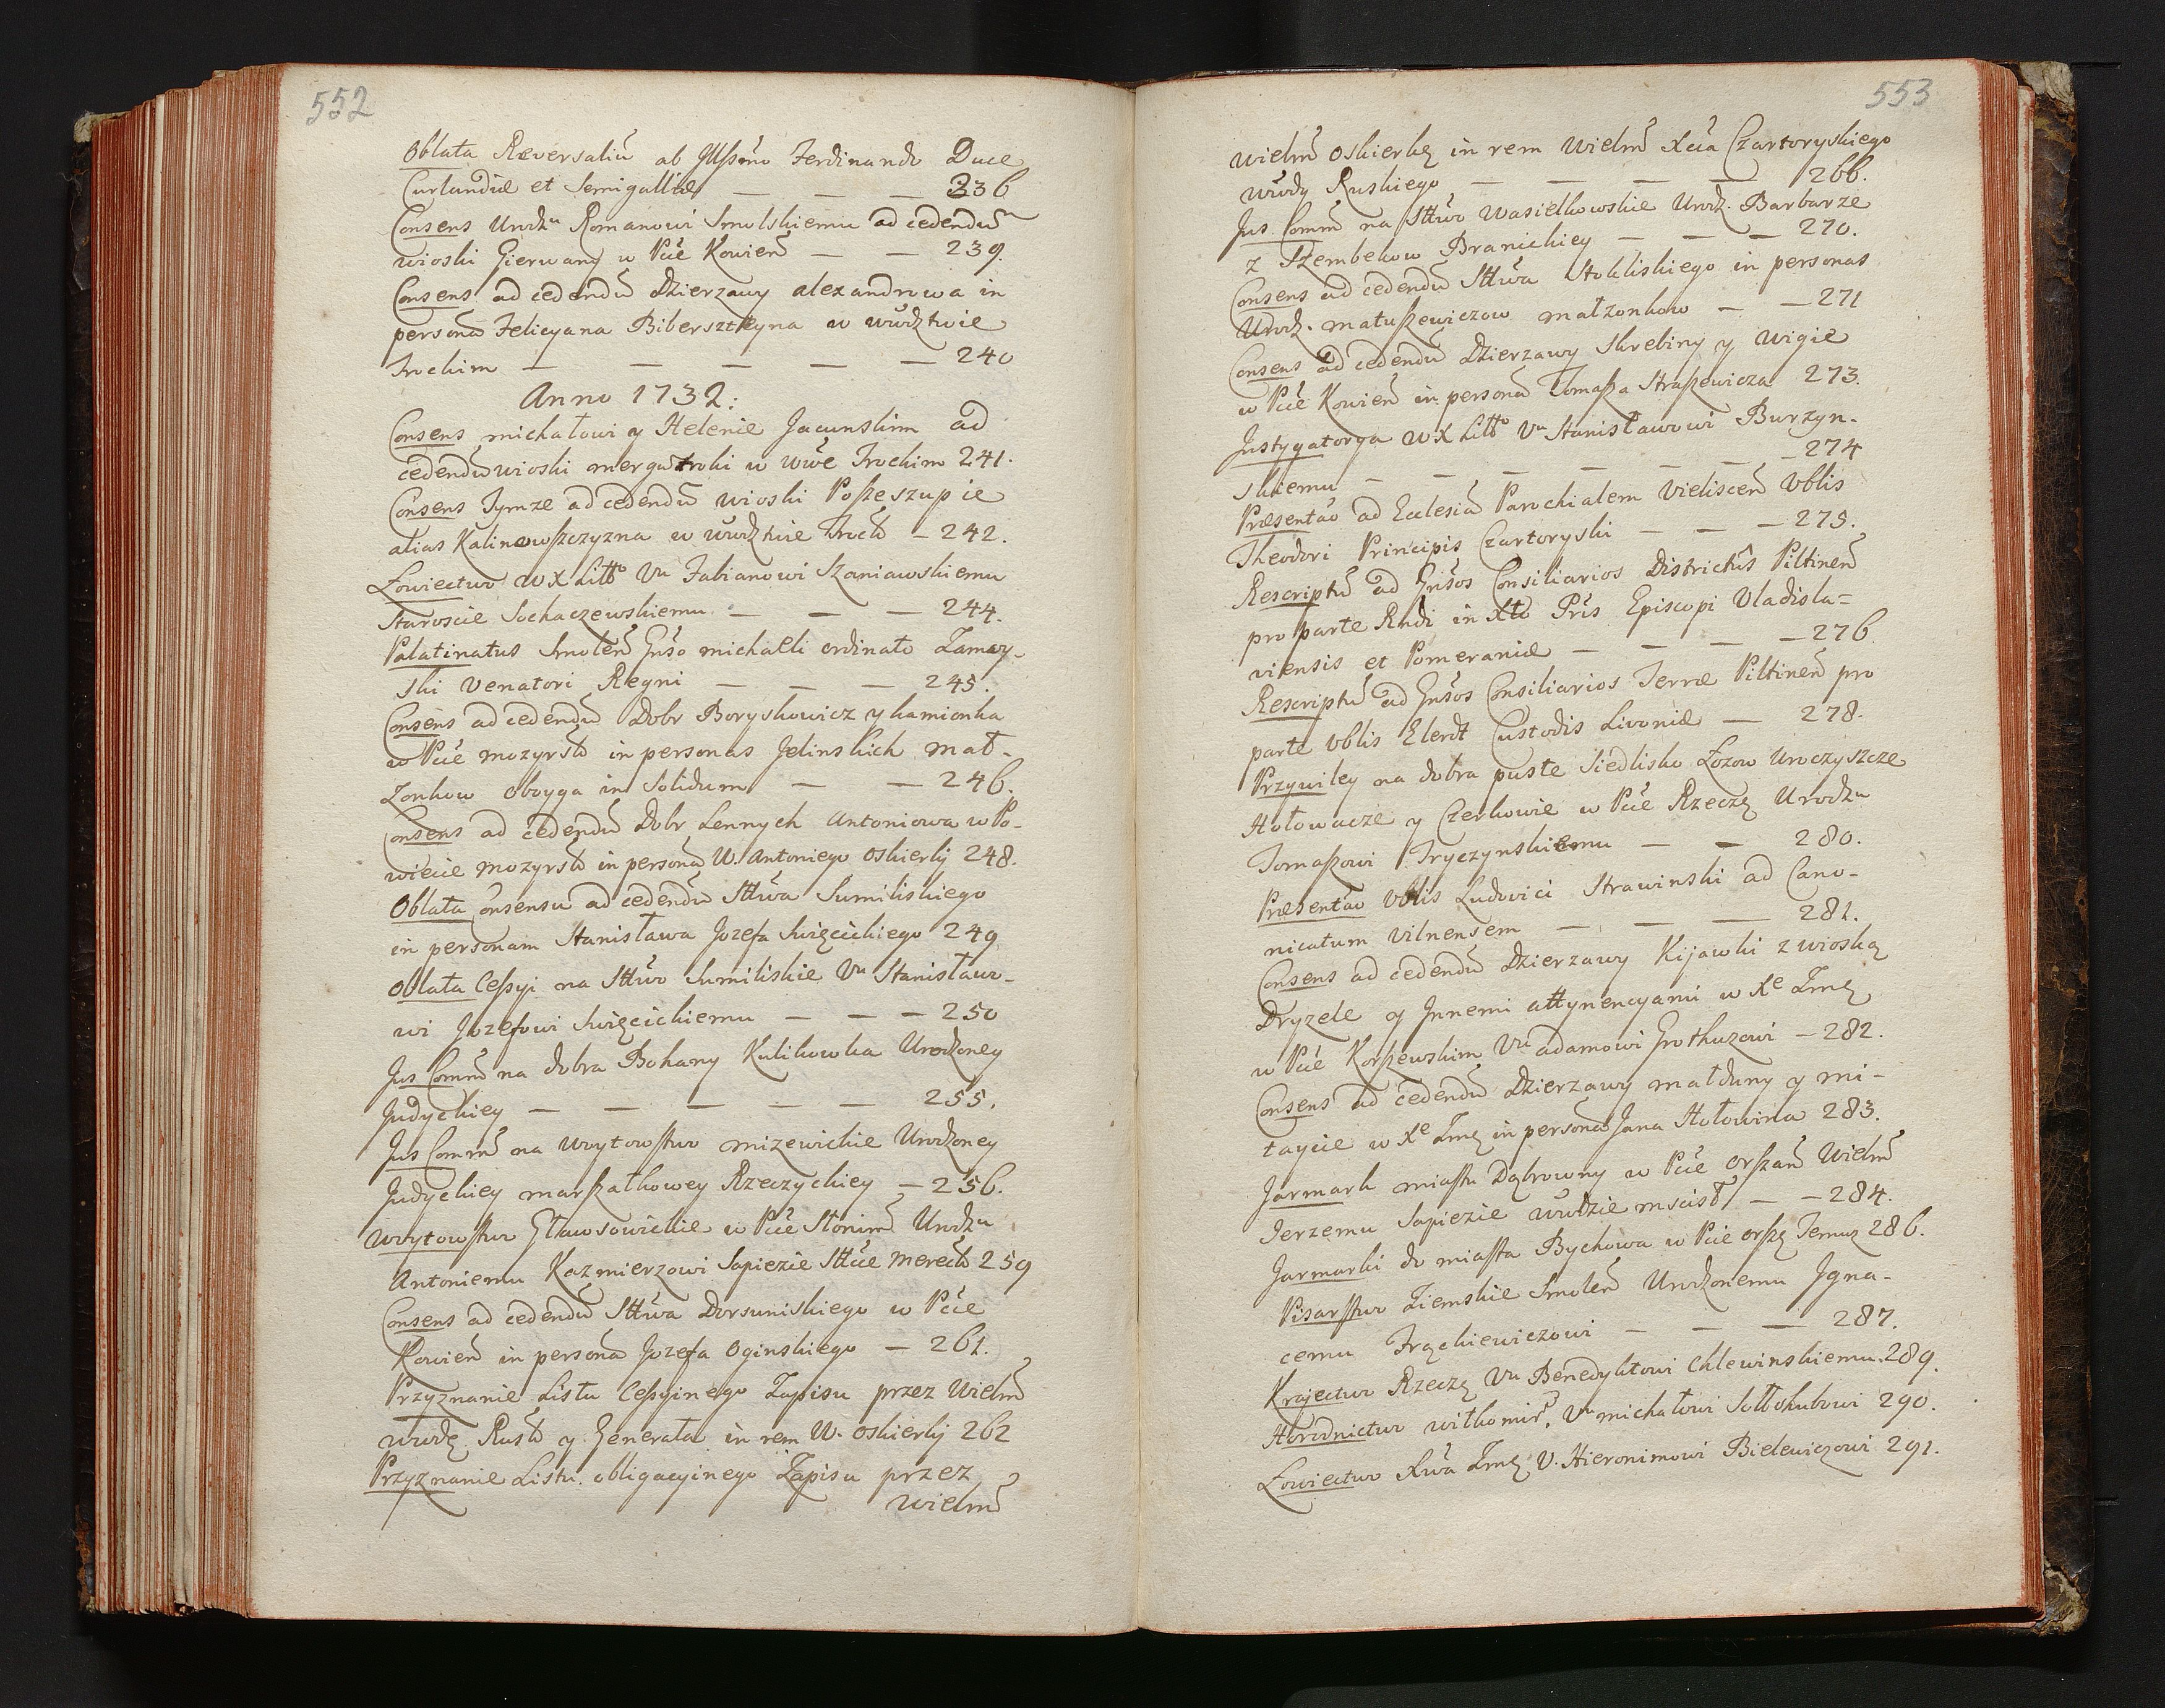 552
Oblata Reversaliū ab Illssmo Ferdinando Duce
Curlandiæ et Semigalliæ — — — 236
Consens Urodzu Romanowi Smolskiemu ad cedendū
wioski Gierwany w Pcie Kowień — — 239.
Consens ad cedendū Dzierzawy alexandrowa in
personā Felicyana Bibersztеyna w wwdztwie
Trockim — — — — — 240
Anno 1732:
Consens michałowi y Helenie Jacunskim ad
cedendū wioski mergatroki w wwe Trockim 241.
Consens Tymze ad cedendū wioski Poszeszupie
alias Kalinowszczyzna w wwdztwie Trock — 242.
Łowiectwo W X Litt° Vu Fabianowi Szaniawskiemu
Staroscie Sochaczewskiemu — — — 244.
Palatinatus Smoleń Gnšo michaeli ordinato Zamoy-
ski Venatori Regni — — — 245.
Consens ad cedendū Dobr Boryskowicz y kamionka
w Pcie mozyrsk in personas Jelinskich mał-
zonkow oboyga in Solidum — — 246.
Consens ad cedendū Dobr Lennych Antoniowa w Po-
wiecie mozyrsk in personā W. Antoniego Oskierki 248.
Oblata Consensu ad cedendū Sttwa Sumiliskiego
in personam Stanisława Jozefa Swięcickiego 249
Oblata Cessyi na Sttwo Sumiliskie Vu Stanisławo-
wi Jozefowi Swięcickiemu — — — 250
Jus Comm̄ na dobra Bokany Kulikowka Urodzoney
Judyckiey — — — — — 255.
Jus Comm̄ na woytowstwo mizewickie Urodzoney
Judyckiey marszałkowey Rzeczyckiey — 256.
Woytowstwo Gławsowickie w Pcie Słonim Urodzu
Antoniemu Kazmierzowi Sapiezie Sttcie Mereck 259
Consens ad cedendū Sttwa Dorsuniskiego w Pcie
Kowień in personā Jozefa Oginskiego — 261.
Przyznanie Listu Cessyinego Zapisu przez Wielm̄
wwdę Rusk y Generała in rem W. Oskierki 262
Przyznanie Listu obligacyinego Zapisu przez
Wielm̄
553
Wielm̄ Oskierkę in rem Wielm̄ Xcia Czartoryskiego
wwdy Ruskiego — — — — 266.
Jus Comm̄ na Sttwo Wasielkowskie Urodz. Barbarze
z Szembekow Branickiey — — — 270.
Consens ad cedendū Sttwa Stokliskiego in personas
Urodz. matuszewiczow małzonkow — — 271
Consens ad cedendū Dzierzawy Skrebiny y Wigie
w Pcie Kowień in personā Tomasza Straszewicza 273.
Instygatorya W X Litt° Vu Stanisławowi Burzyn-
skiemu — — — — — — 274
Præsentao ad Ecclesiā Parochialem Vielisceń Vblis
Theodori Principis Czartoryski — — — 275.
Rescriptū ad Gnšos Consiliarios Districtûs Piltineń
pro parte Rndi in Xto Pris Episcopi Vladisla=
viensis et Pomeraniæ — — — — 276
Rescriptū ad Gnšos Consiliarios Terræ Piltineń pro
parte Vblis Elerdt Custodis Livoniæ — 278.
Przywiley na dobra puste Siedlisko Łozow Uroczyszcze
Hołowacze y Czerkowie w Pcie Rzeczę Urodzu
Tomaszowi Fryczynskiemu — — 280.
Præsentao Vblis Ludovici Strawinski ad Cano-
nicatum Vilnensem — — — 281.
Consens ad cedendū Dzierzawy Kijawki z wioską
Dryzele y Innemi attynencyami w Xe Zmę
w Pcie Korszewskim Vu adamowi Grothuzowi — 282.
Consens ad cedendū Dzierzawy małduny y mi-
taycie w Xe Zmę in personā Jana Hołowina 283.
Jarmark miasta Dąbrowny w Pcie orszań Wielm̄
Jerzemu Sapiezie wwdzie mscisł — — 284.
Jarmarki do miasta Bychowa w Pcie orszę Temuz 286.
Pisarstwo Ziemskie Smoleń Urodzonemu Igna-
cemu Frąckiewiczowi — — — 287.
Krajectwo Rzeczę Vu Benedyktowi Chlewinskiemu. 289.
Horodnictwo wiłkomir. Vu michałowi Sołłohubowi 290.
Łowiectwo Xwa Zmę V. Hieronimowi Bielewiczowi 291.